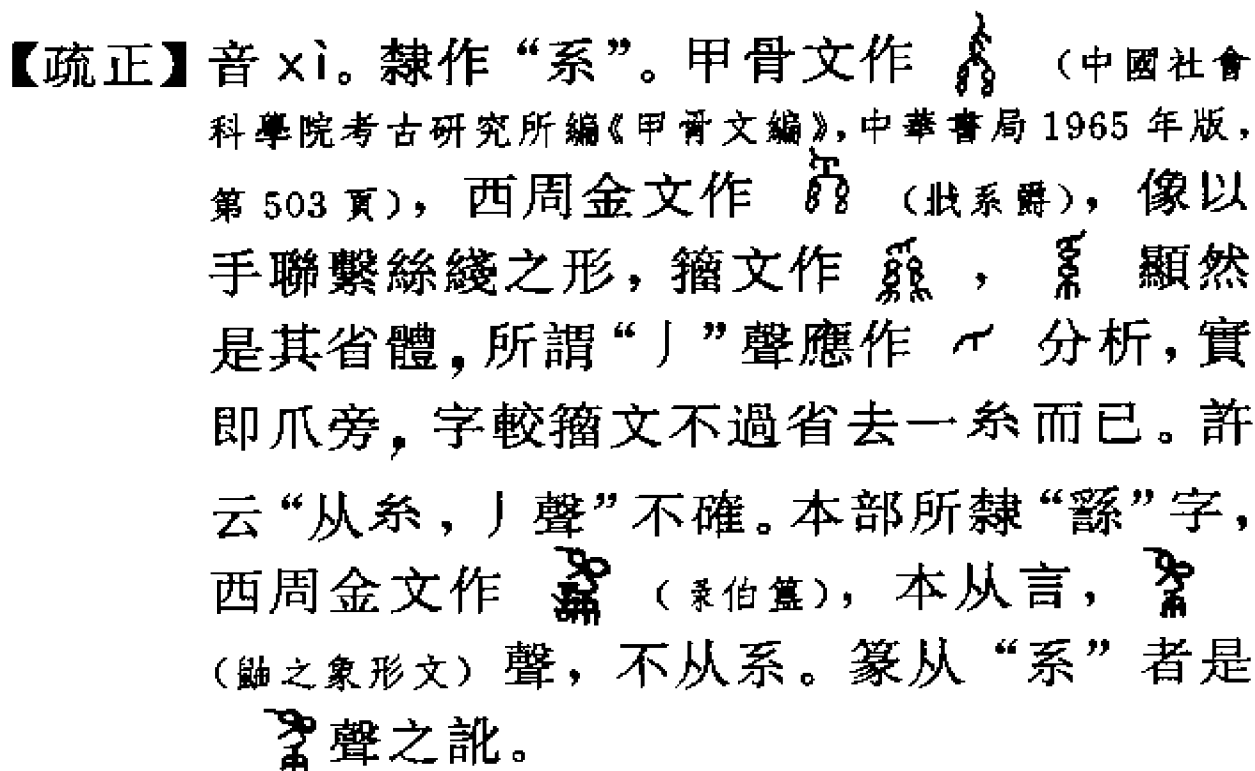 【疏正】音xì。隸作“系”。甲骨文作（中國社會
科學院考古研究所編《甲骨文編》，中華書局1965年版，
第503頁），西周金文作（㽙系爵），像以
手聯繫絲綫之形，籀文作，顯然
是其省體，所謂“丿”聲應作分析，實
即爪旁，字較籀文不過省去一糸而已。許
云“从糸，丿聲”不確。本部所隸“繇”字，
西周金文作（彔伯簋），本从言，
（鼬之象形文）聲，不从系。篆从“系”者是
聲之訛。